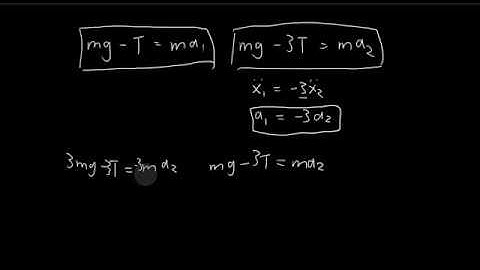 mg - T = ma₁ mg - 3T = ma₂
ẍ₁ = -3ẍ₂
a₁ = -3a₂
3mg - 3T = -3ma₂ mg - 3T = ma₂